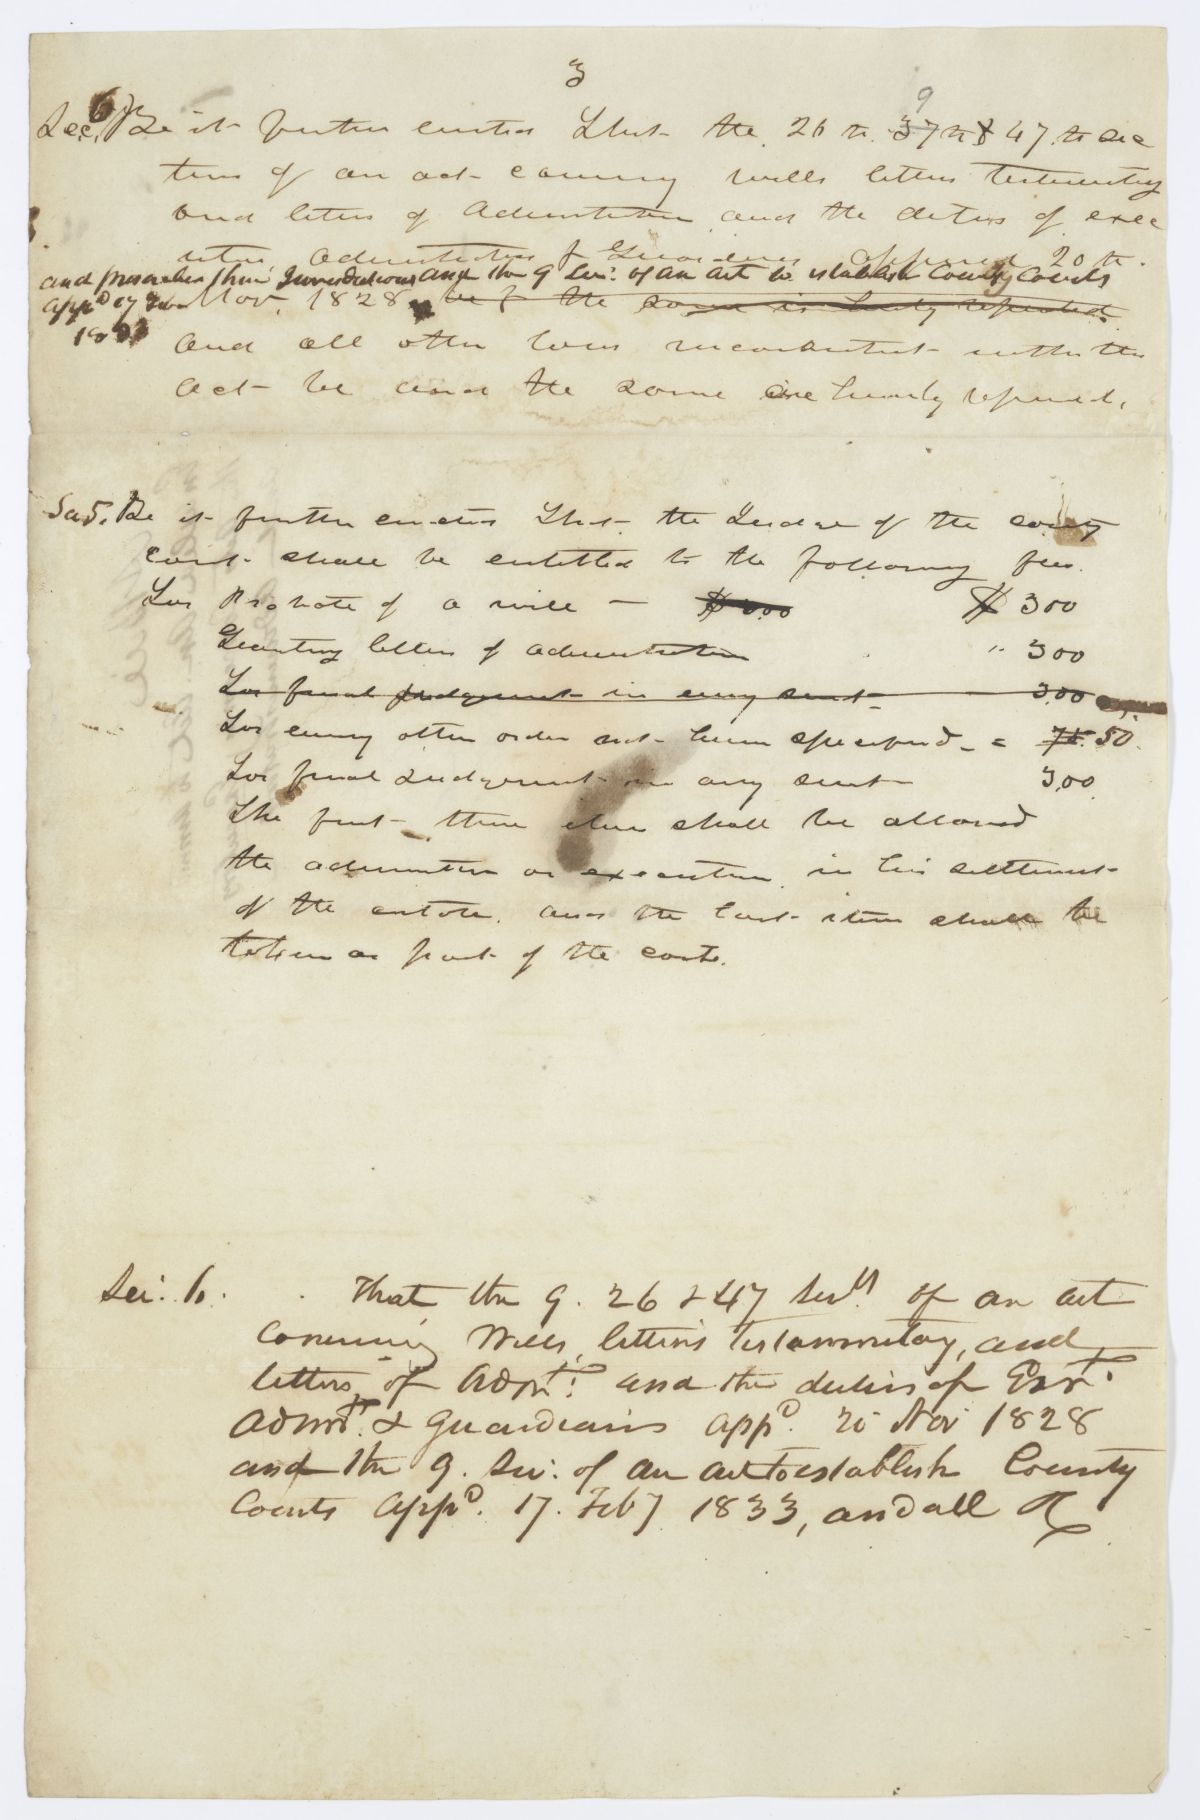 3
Sec. 6 Be it further enacted That the 26 th. 37 th 9 & 47. th sec
tions of an act concerning wills letters testamentary
and letters of Administration and the duties of exec
utors administrators & Guardians approved 20 th.
and prescribes their Jurisdictions and the 9 Sec: of an act to establish County Courts
appd 17 Feb
1833
Nov, 1828, be & the same is hereby repealed.
and all other laws inconsistent with this
act be and the same are hereby repealed.
Sec 5. Be it further enacted That the Judge of the county
court shall be entitled to the following fees.
For Probate of a will — $3.00 $ 300
Granting letters of administration " 300
For final judgement in every suit 3.00
For every other order not herein specified - = 75 50.
For final Judgement in any suit 3.00.
The first three items shall be allowed
the administrator or executor in his settlement
of the estate. and the last item shall be
taken as part of the costs.
Sec: 6. That the 9. 26 & 47 Secs. of an act
concerning Wills, letters testamentary, and
letters of Admn: and the duties of Exrs.
Admrs. & Guardians appd. 20 Nov 1828
and the 9. Sec: of an act to establish County
Courts appd. 17. Feby 1833, and all &c